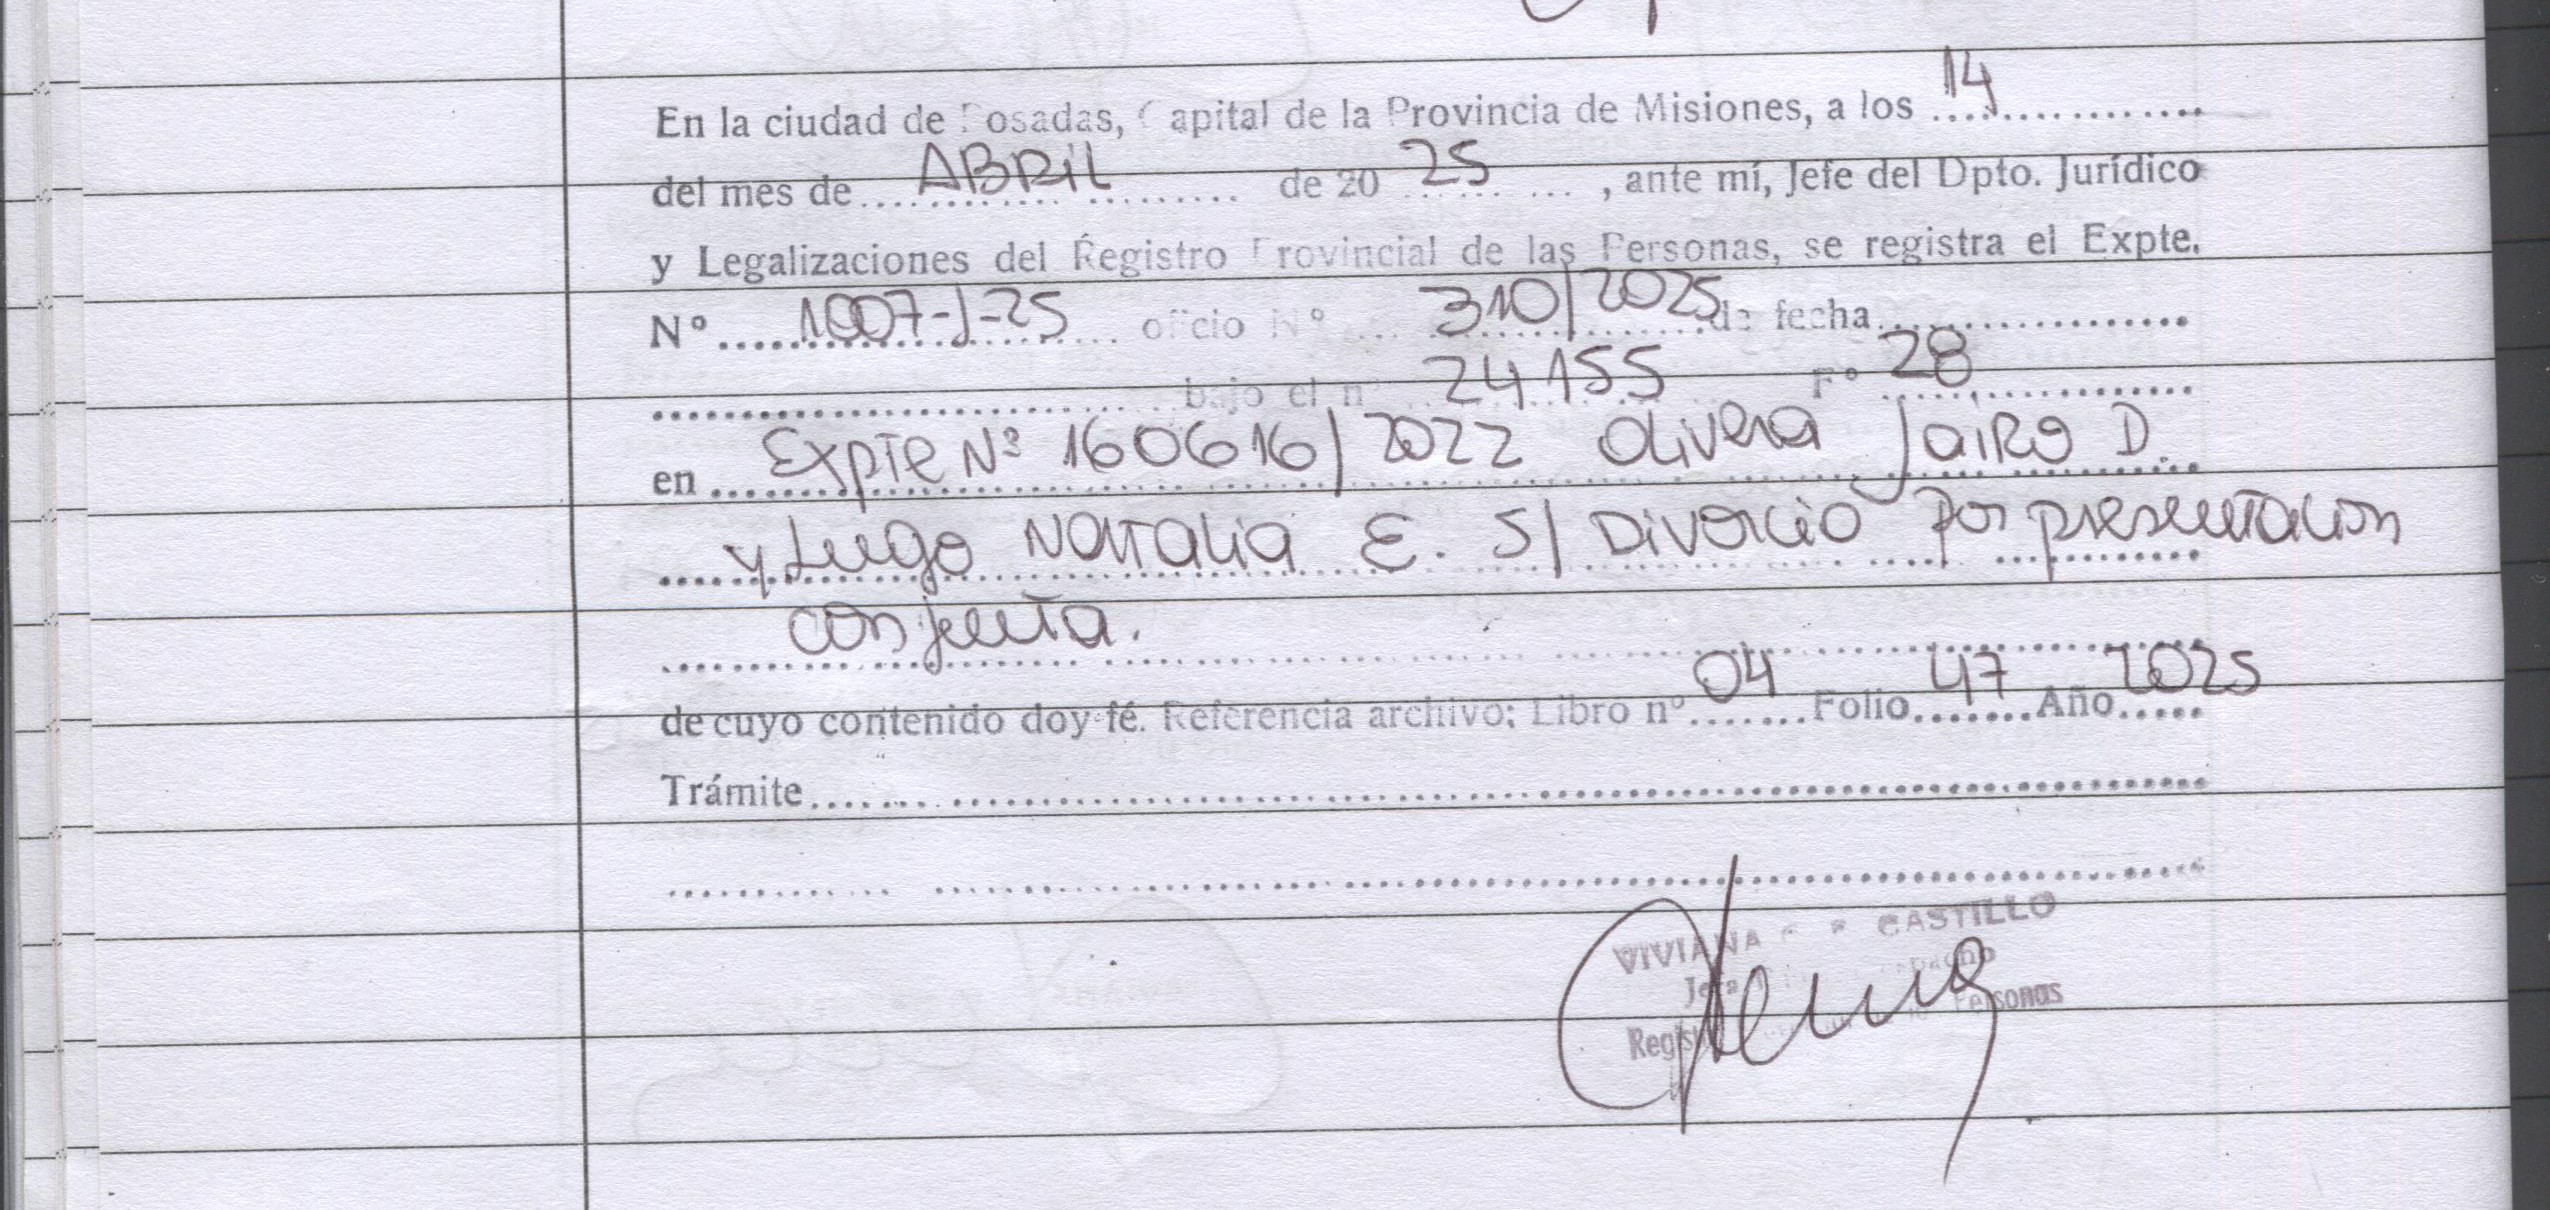 En la ciudad de Posadas, Capital de la Provincia de Misiones, a los 14
del mes de ABRIL de 20 25, ante mí, Jefe del Dpto. Jurídico
y Legalizaciones del Registro Provincial de las Personas, se registra el Expte.
Nº 1007-J-25 oficio Nº 310/2025 de fecha
bajo el nº 24155 Fº 28
en Expte Nº 160616/2022 Olivera Jairo D.
y Lugo Natalia E. S/ Divorcio por presentacion
conjunta.
de cuyo contenido doy fé. Referencia archivo: Libro nº 04 Folio 47 Año 2025
Trámite
VIVIANA CASTILLO
Jefa
Registro Personas